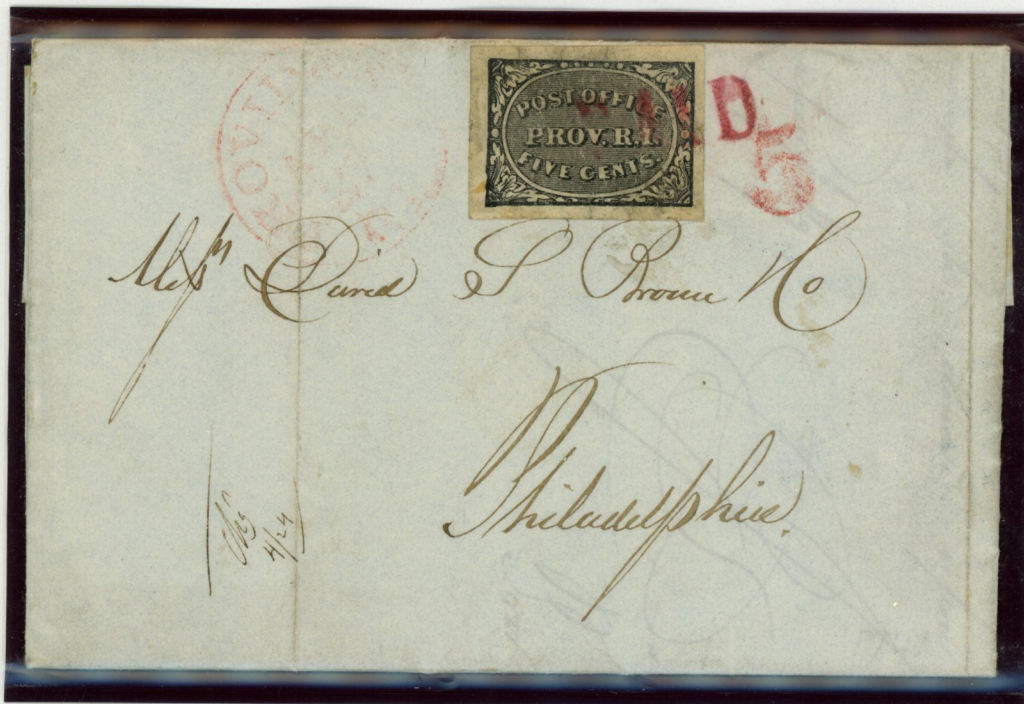 PROVIDENCE
POST OFFICE
PROV. R. I.
FIVE CENTS.
PAID
5
Mess David S Brown & Co
Philadelphia.
4/24